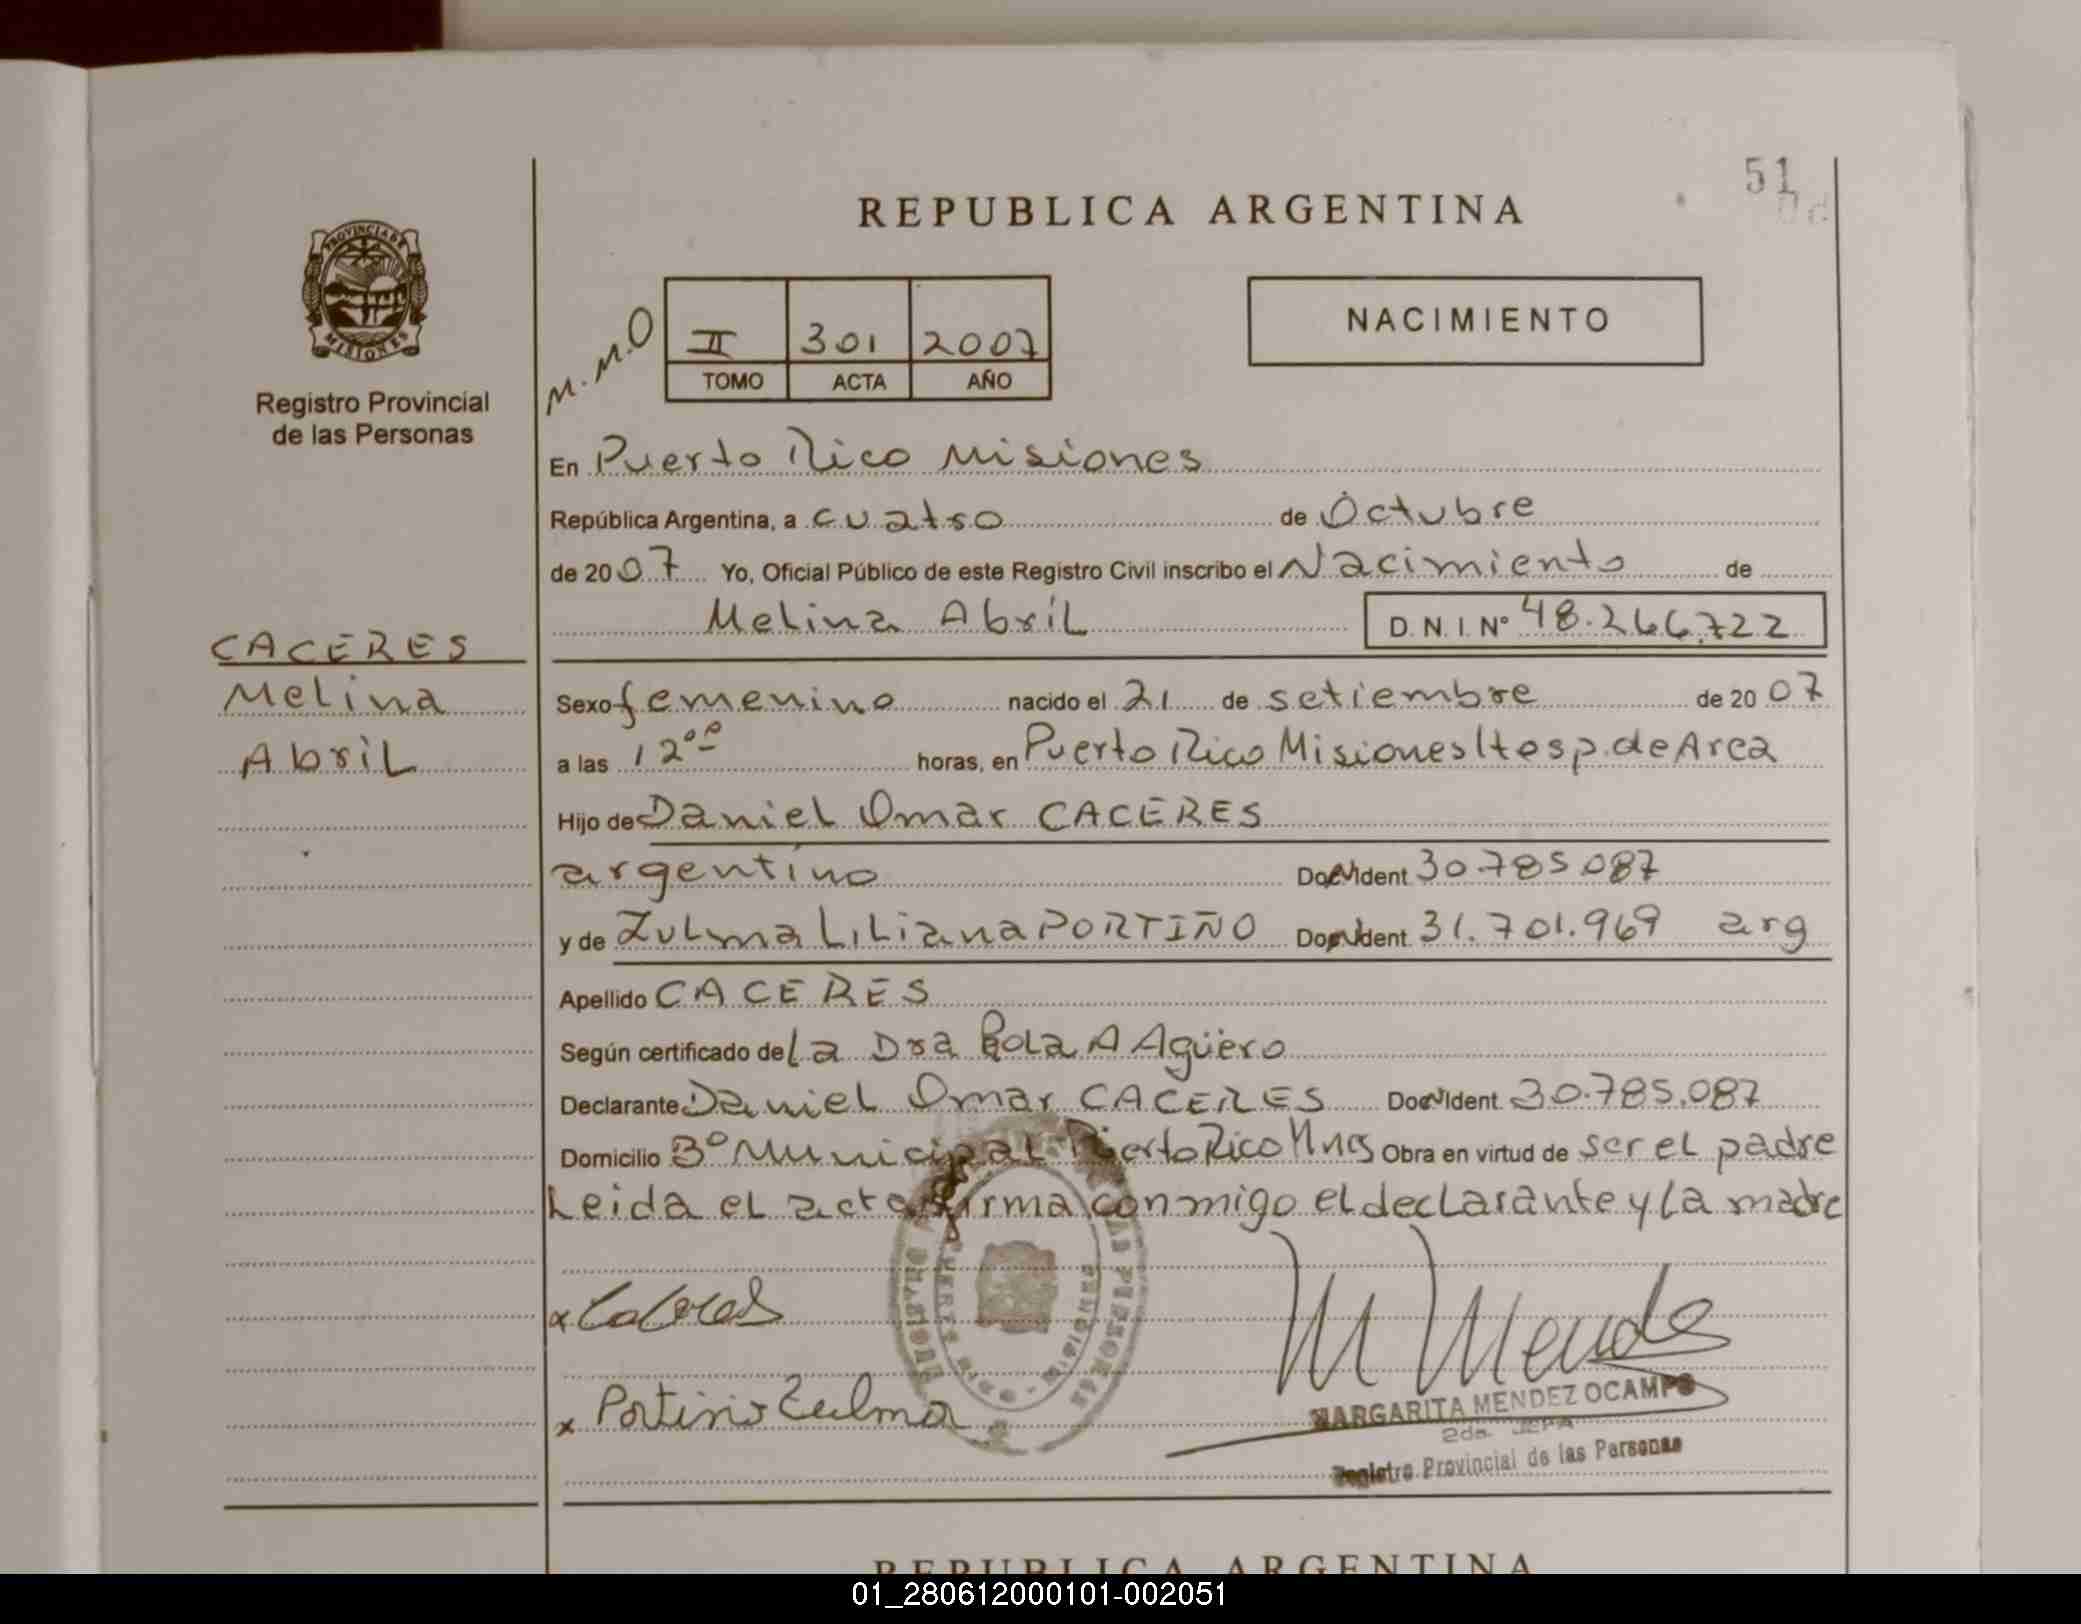 51
REPUBLICA ARGENTINA
PROVINCIA DE
MISIONES
Registro Provincial
de las Personas
M.M.O
II 301 2007
TOMO ACTA AÑO
NACIMIENTO
En Puerto Rico Misiones
República Argentina, a cuatro de Octubre
de 2007 Yo, Oficial Público de este Registro Civil inscribo el Nacimiento de
Melina Abril D.N.I. Nº 48.266.722
CACERES
Melina
Abril
Sexo femenino nacido el 21 de setiembre de 2007
a las 12⁰⁰ horas, en Puerto Rico Misiones Hosp. de Area
Hijo de Daniel Omar CACERES
argentino Doc Ident 30.785.087
y de Zulma Liliana PORTIÑO Doc Ident 31.701.969 arg
Apellido CACERES
Según certificado de La Dra Rola A Agüero
Declarante Daniel Omar CACERES Doc Ident 30.785.087
Domicilio Bº Municipal Puerto Rico Mnes Obra en virtud de ser el padre
Leida el acta firma conmigo el declarante y la madre
x Caceres
x Portiño Zulma
M Mendez
MARGARITA MENDEZ OCAMPO
2da. JEFA
Registro Provincial de las Personas
REPUBLICA ARGENTINA
01_280612000101-002051